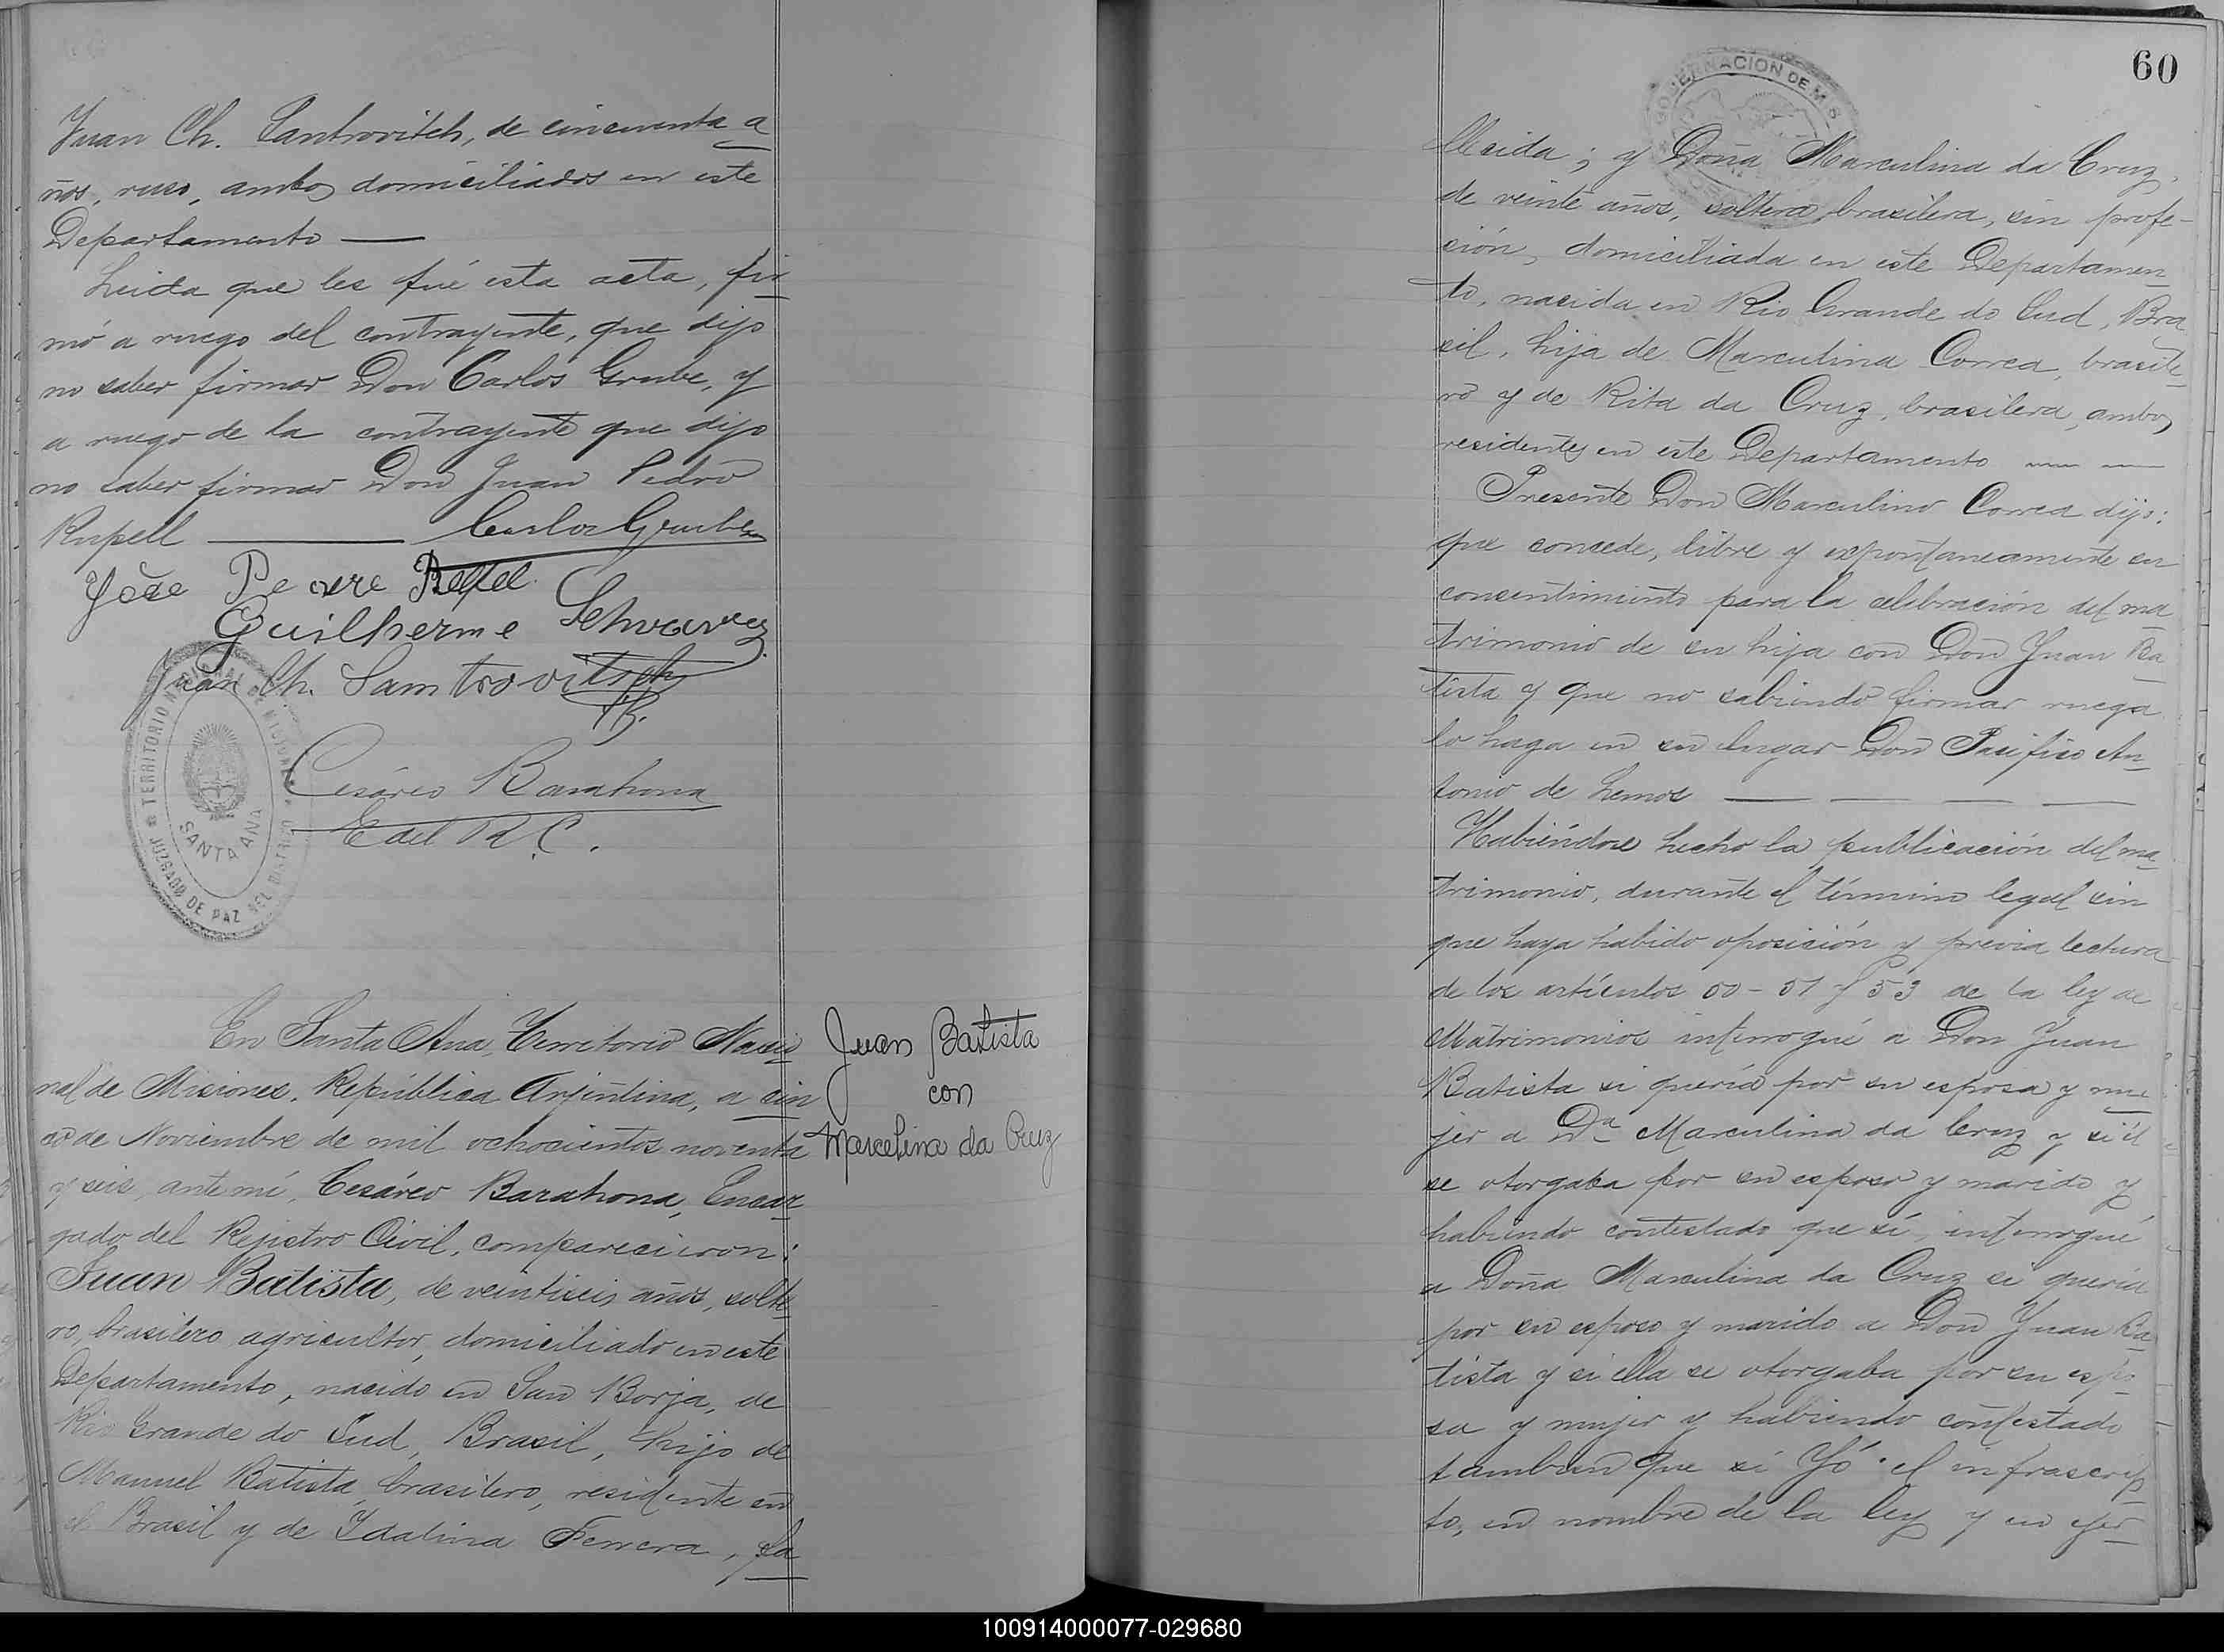 Juan Ch. Santrovitch, de cincuenta a
ños, ruso, ambos domiciliados en este
Departamento —
Leida que les fué esta acta, fir
mó a ruego del contrayente, que dijo
no saber firmar Don Carlos Grube, y
a ruego de la contrayente que dijo
no saber firmar Don Juan Pedro
Rupell — Carlos Grube
Guilherme
Juan Ch. Samtrovitsch
Cesáreo Barahona
E del R. C.
TERRITORIO NACIONAL DE MISIONES
SANTA ANA
JUZGADO DE PAZ DEL DISTRITO
En Santa Ana, Territorio Nacio
nal de Misiones, República Arjentina, a cin
co de Noviembre de mil ochocientos noventa
y seis, ante mí, Cesáreo Barahona, Encar
gado del Rejistro Civil, comparecieron:
Juan Batista, de veintiseis años, solte
ro, brasilero, agricultor, domiciliado en este
Departamento, nacido en San Borja, de
Rio Grande do Sud, Brasil, hijo de
Manuel Batista, brasilero, residente en
el Brasil y de Idalina Ferrera, fa
Juan Batista
con
Marcelina da Cruz
60
GOBERNACION DE MIS
llecida; y Doña Marculina da Cruz,
de veinte años, soltera, brasilera, sin profe-
sión, domiciliada en este Departamen
to, nacida en Rio Grande do Sud, Bra
sil, hija de Marculina Correa, brasile
ro y de Rita da Cruz, brasilera, ambos
residentes en este Departamento — —
Presente Don Marculino Correa dijo:
que concede, libre y expontaneamente su
consentimiento para la celebración del ma
trimonio de su hija con Don Juan Ba
tista y que no sabiendo firmar ruega
lo haga en su lugar Don Pacifico An
tonio de Lemos — — — —
Habiéndose hecho la publicación del ma
trimonio, durante el término legal sin
que haya habido oposición y previa lectura
de los artículos 50 - 51 y 53 de la ley de
Matrimonios interrogué a Don Juan
Batista si quería por su esposa y mu
jer a Da Marculina da Cruz y si él
se otorgaba por su esposo y marido y
habiendo contestado que sí, interrogué
a Doña Marculina da Cruz si quería
por su esposo y marido a Don Juan Ba
tista y si ella se otorgaba por su espo
sa y mujer y habiendo contestado
tambien que sí Yó el infrascrip
to, en nombre de la ley y en ejer
100914000077-029680